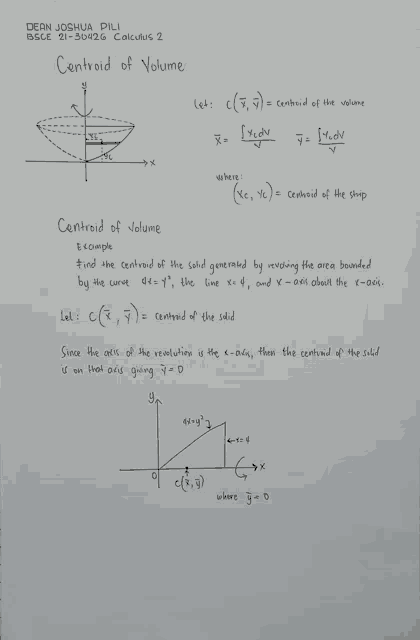 DEAN JOSHUA PILI
BSCE 21-30426 Calculus 2
Centroid of Volume
y
x
Yc
Yc
Let: C(x̄, ȳ) = centroid of the volume
x̄ = ∫Xc dV / V    ȳ = ∫Yc dV / V
where:
(Xc, Yc) = centroid of the strip
Centroid of Volume
Example
Find the centroid of the solid generated by revolving the area bounded
by the curve 4x = y², the line x = 4, and x-axis about the x-axis.
Let: C(x̄, ȳ) = centroid of the solid
Since the axis of the revolution is the x-axis, then the centroid of the solid
is on that axis giving ȳ = 0
y
4x = y²
x = 4
0
x
C(x̄, ȳ)
where ȳ = 0